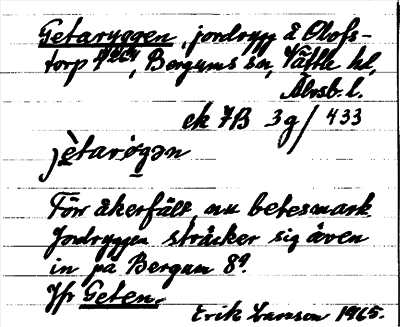 Getaryggen, jordrygg å Olofs-
torp 1:264, Bergums sn, Vättle hd,
Älvsb. l.
ek 7B 3g/433
jètarögən
Förr åkerfält, nu betesmark.
Jordryggen sträcker sig även
in på Bergum 8:9.
Jfr Geten.
Erik Larsson 1965.